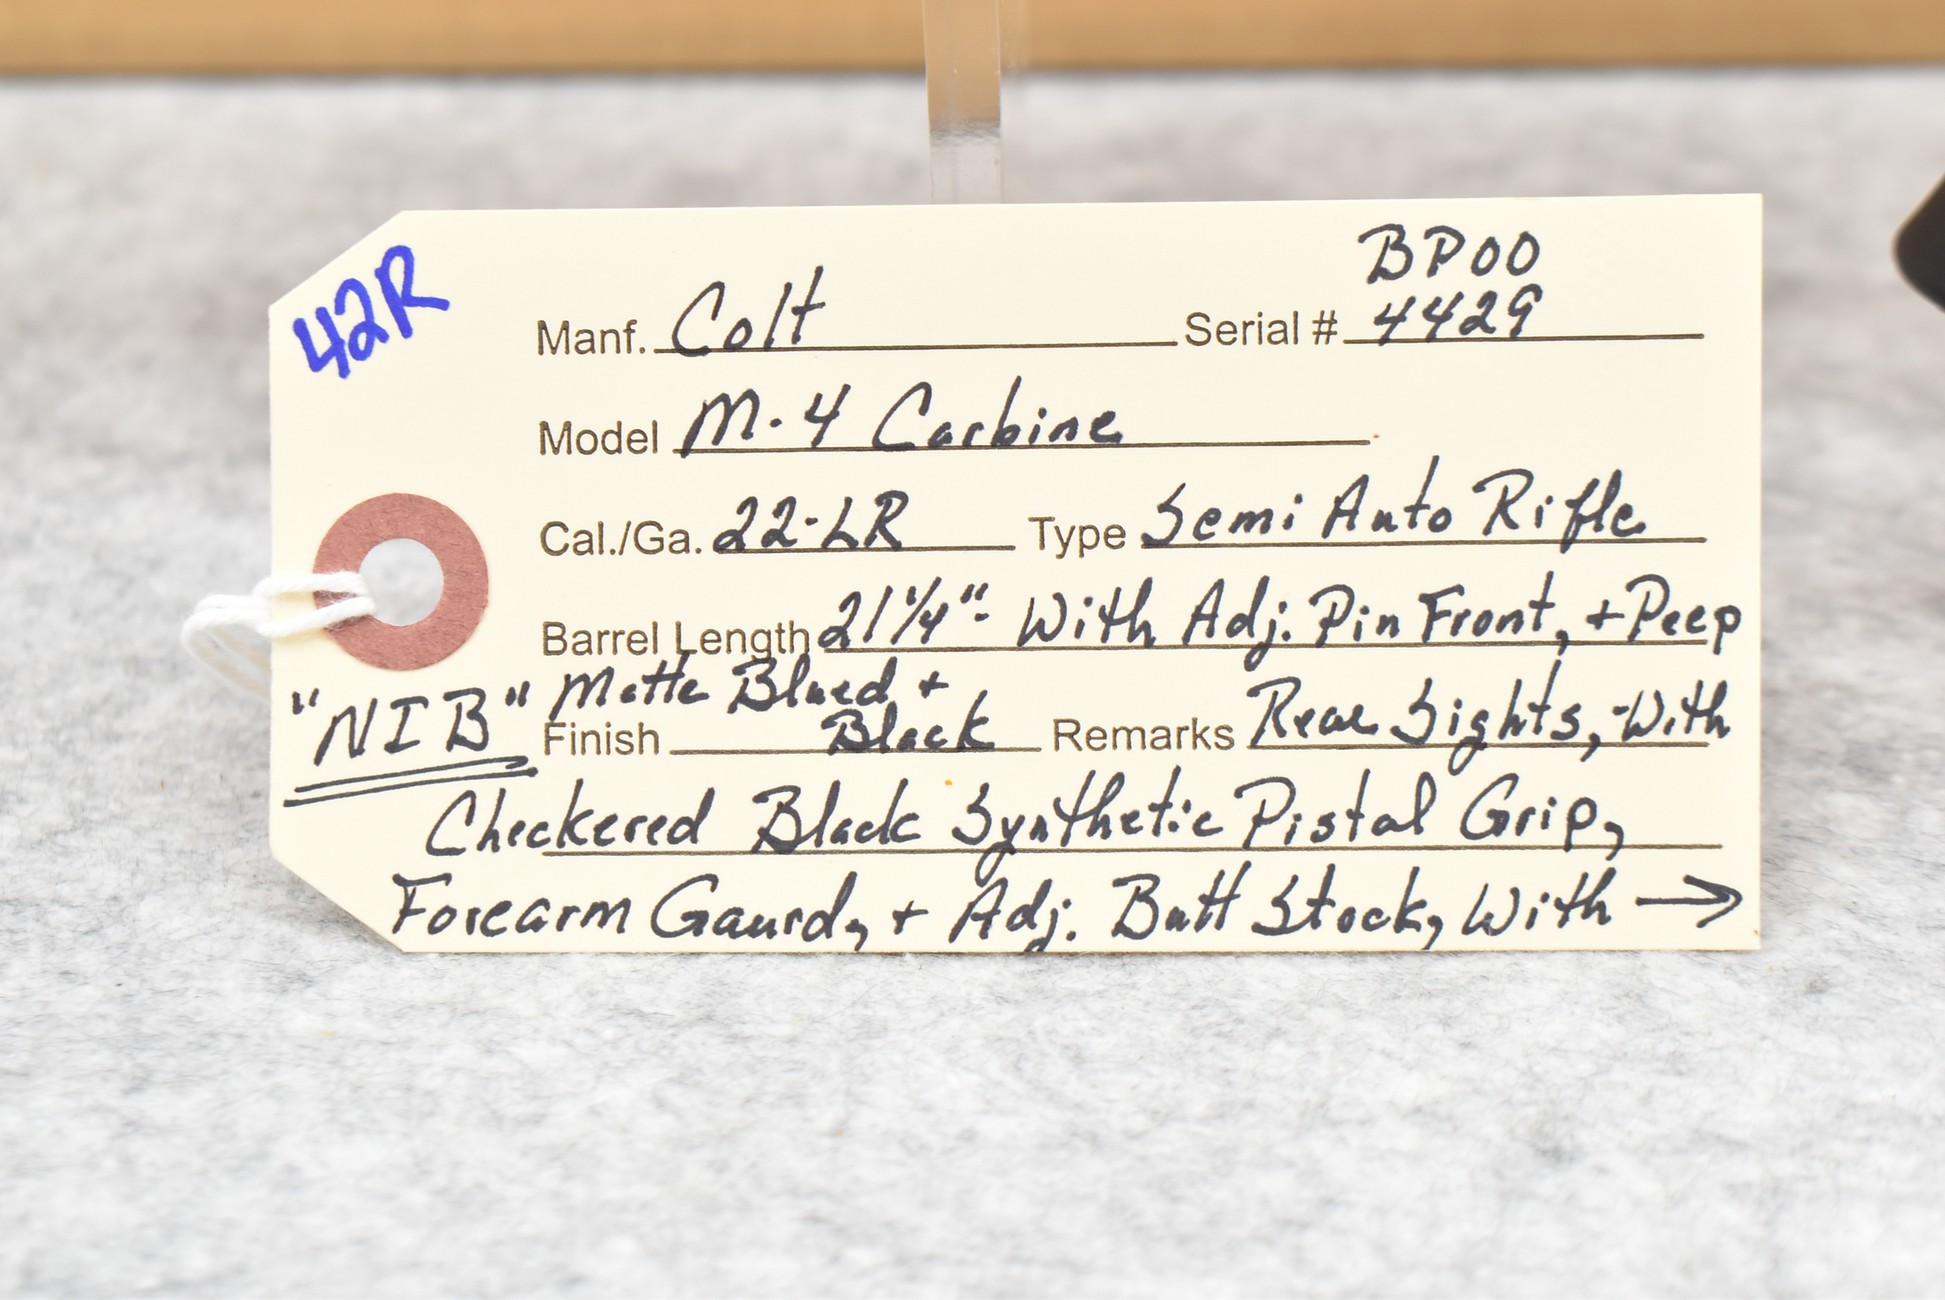 42R
BP00
Manf. Colt Serial # 4429
Model M-4 Carbine
Cal./Ga. 22-LR Type Semi Auto Rifle
Barrel Length 21 1/4"- With Adj. Pin Front, + Peep
"NIB" Matte Blued +
Finish Black Remarks Rear Sights, -With
Checkered Black Synthetic Pistal Grip,
Forearm Gaurd, + Adj. Butt Stock, With →